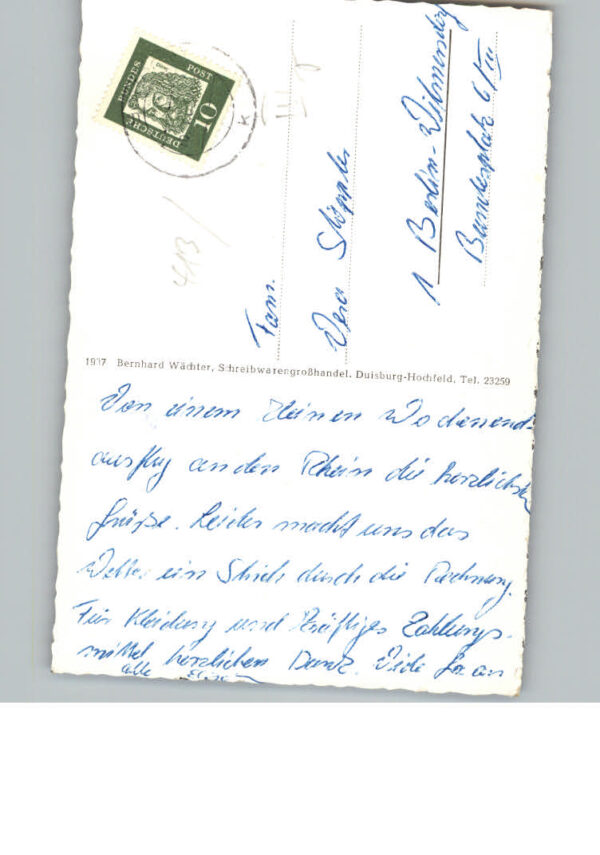 DEUTSCHE BUNDESPOST
10
Dürer
K
413/
Fam.
Vera
1 Berlin-Wilmersdorf
Bundesplatz 6/III
1937 Bernhard Wächter, Schreibwarengroßhandel, Duisburg-Hochfeld, Tel. 23259
Von einem kleinen Wochenend-
ausflug an den Rhein die herzlichsten
Grüße. Leider macht uns das
Wetter ein Strich durch die Rechnung.
Für Kleidung und kräftiges Zahlungs-
mittel herzlichen Dank. Viele Gr. an
alle